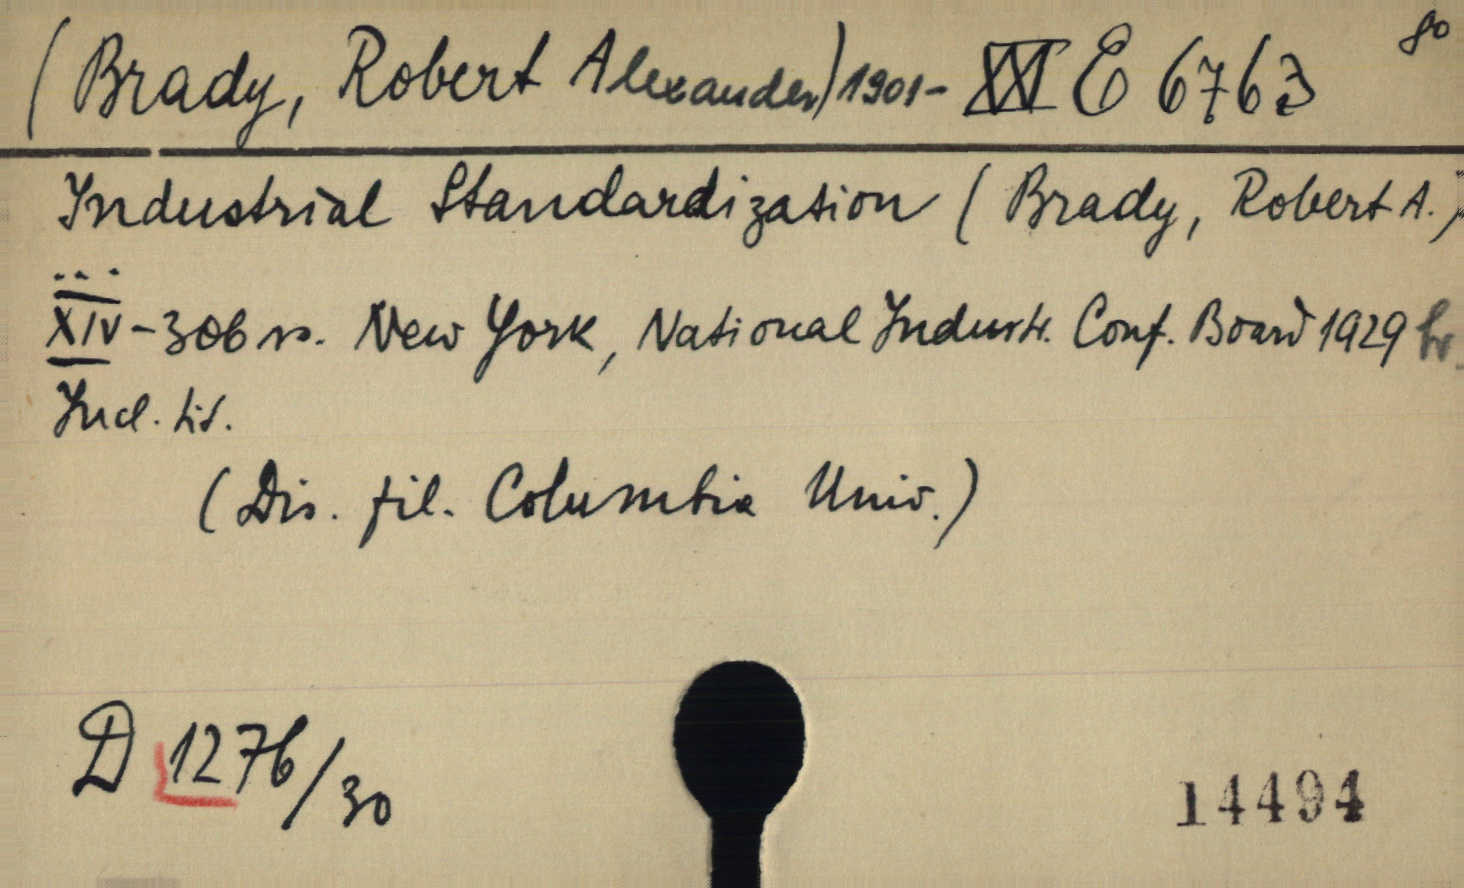 (Brady, Robert Alexander) 1901- XVI E 6763 8°
Industrial Standardization (Brady, Robert A.)
... XIV-306 s. New York, National Industr. Conf. Board 1929 br.
Incl. tit.
(Dis. fil. Columbia Univ.)
D 1276/30
14494